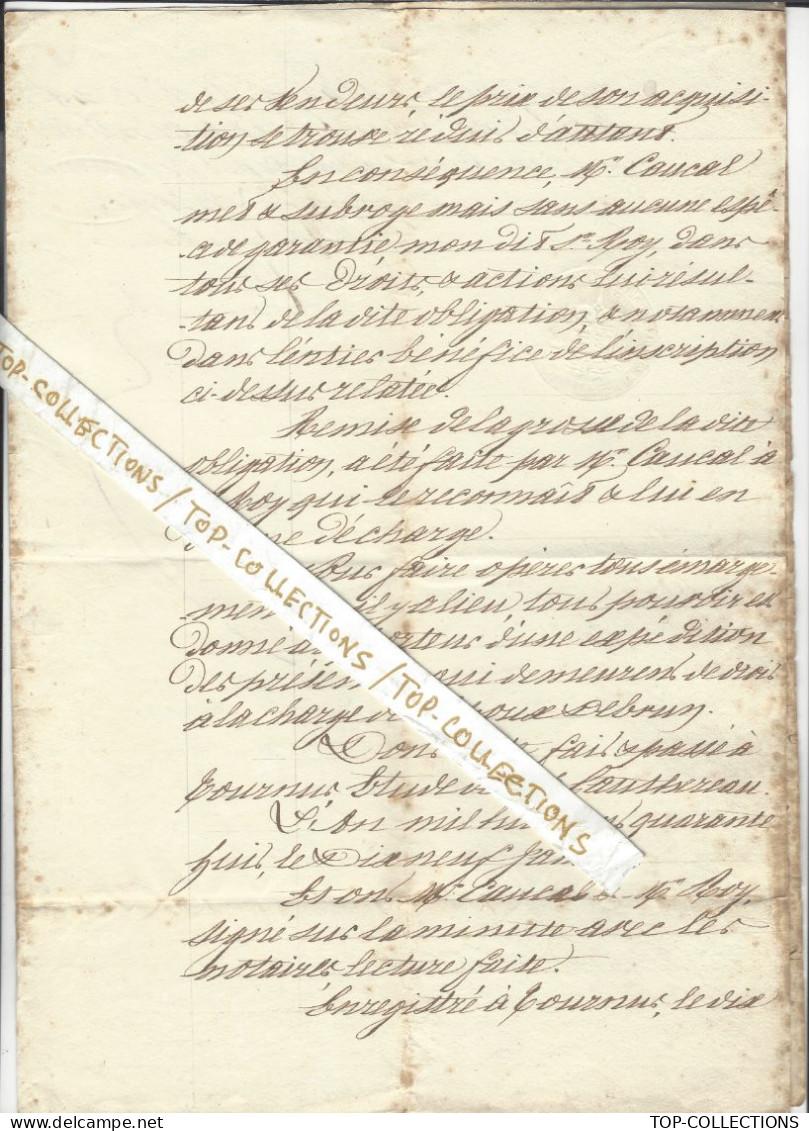 de ses vendeurs, le prix de son acquisi-
-tion se trouve réduit d'autant.
En conséquence, Mr. Caucal
met & subroge mais sans aucune espè-
-ce de garantie mon dit Sr. Roy, dans
tous ses droits, & actions lui résul-
-tant de la dite obligation, & notamment
dans l'entier bénéfice de l'inscription
ci-dessus relatée.
Remise de la grosse de la dite
obligation, a été faite par Mr. Caucal à
Roy qui le reconnaît & lui en
décharge.
Pour faire opérer tous émarge-
men il y a lieu, tous pouvoir est
donné au porteur d'une expédition
des présen qui demeurent de droit
à la charge de Lebrun.
Dont fait & passé à
Tournus Etude de Lauthereau.
L'An mil hui quarante
huit, le Dix neuf Jan
Et ont Mr. Caucal & Mr. Roy,
signé sur la minute avec les
notaires lecture faite.
Enregistré à Tournus, le dix
TOP-COLLECTIONS / TOP-COLLECTIONS / TOP-COLLECTIONS
TOP-COLLECTIONS